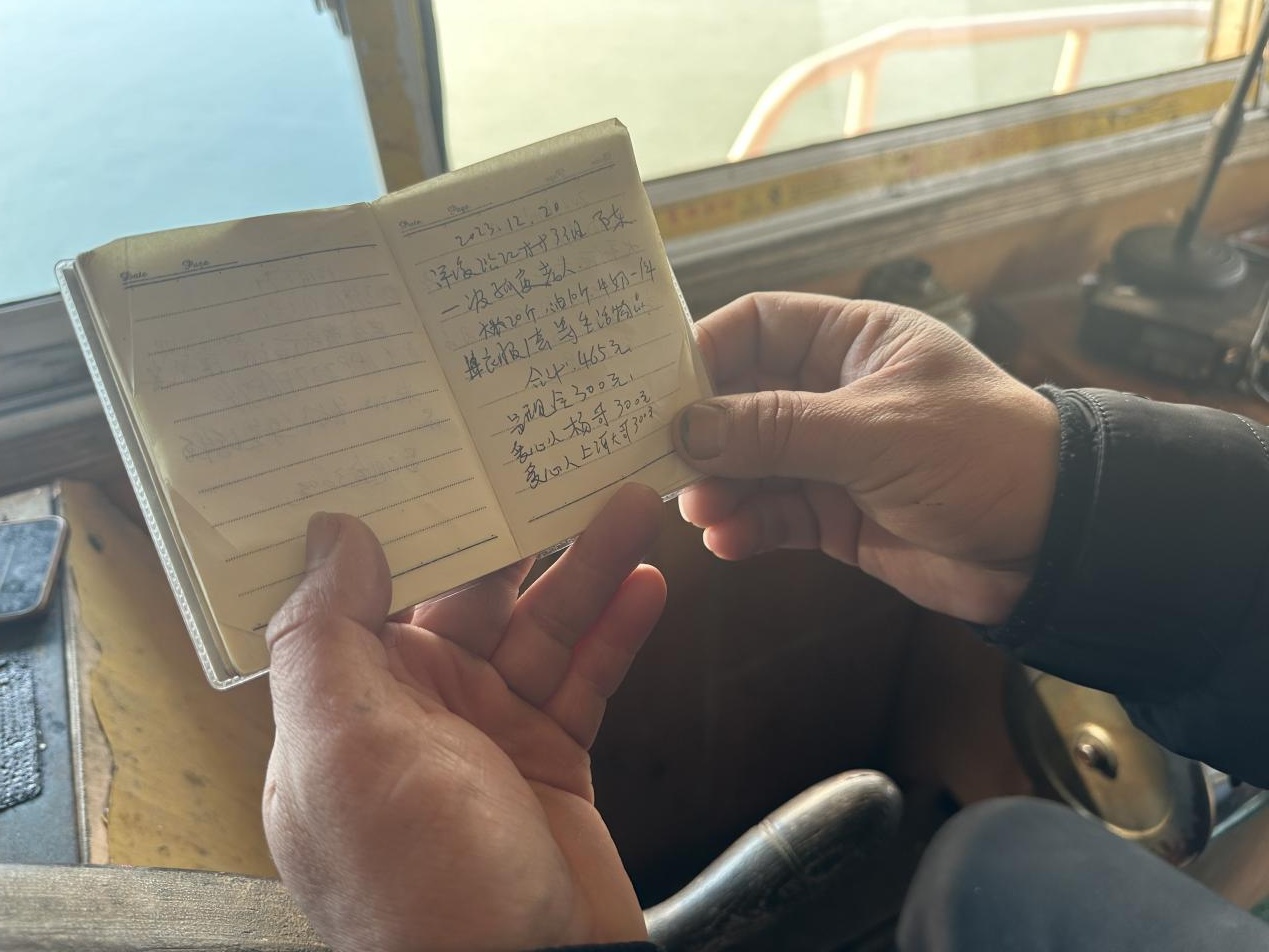 Date Page
Date Page
2023.12.20
一波孤寡老人
米20斤.油10斤.牛奶一件
衣服1套等生活物品
合计.465元
现金300元.
爱心人杨哥300元
爱心人上海大哥300元